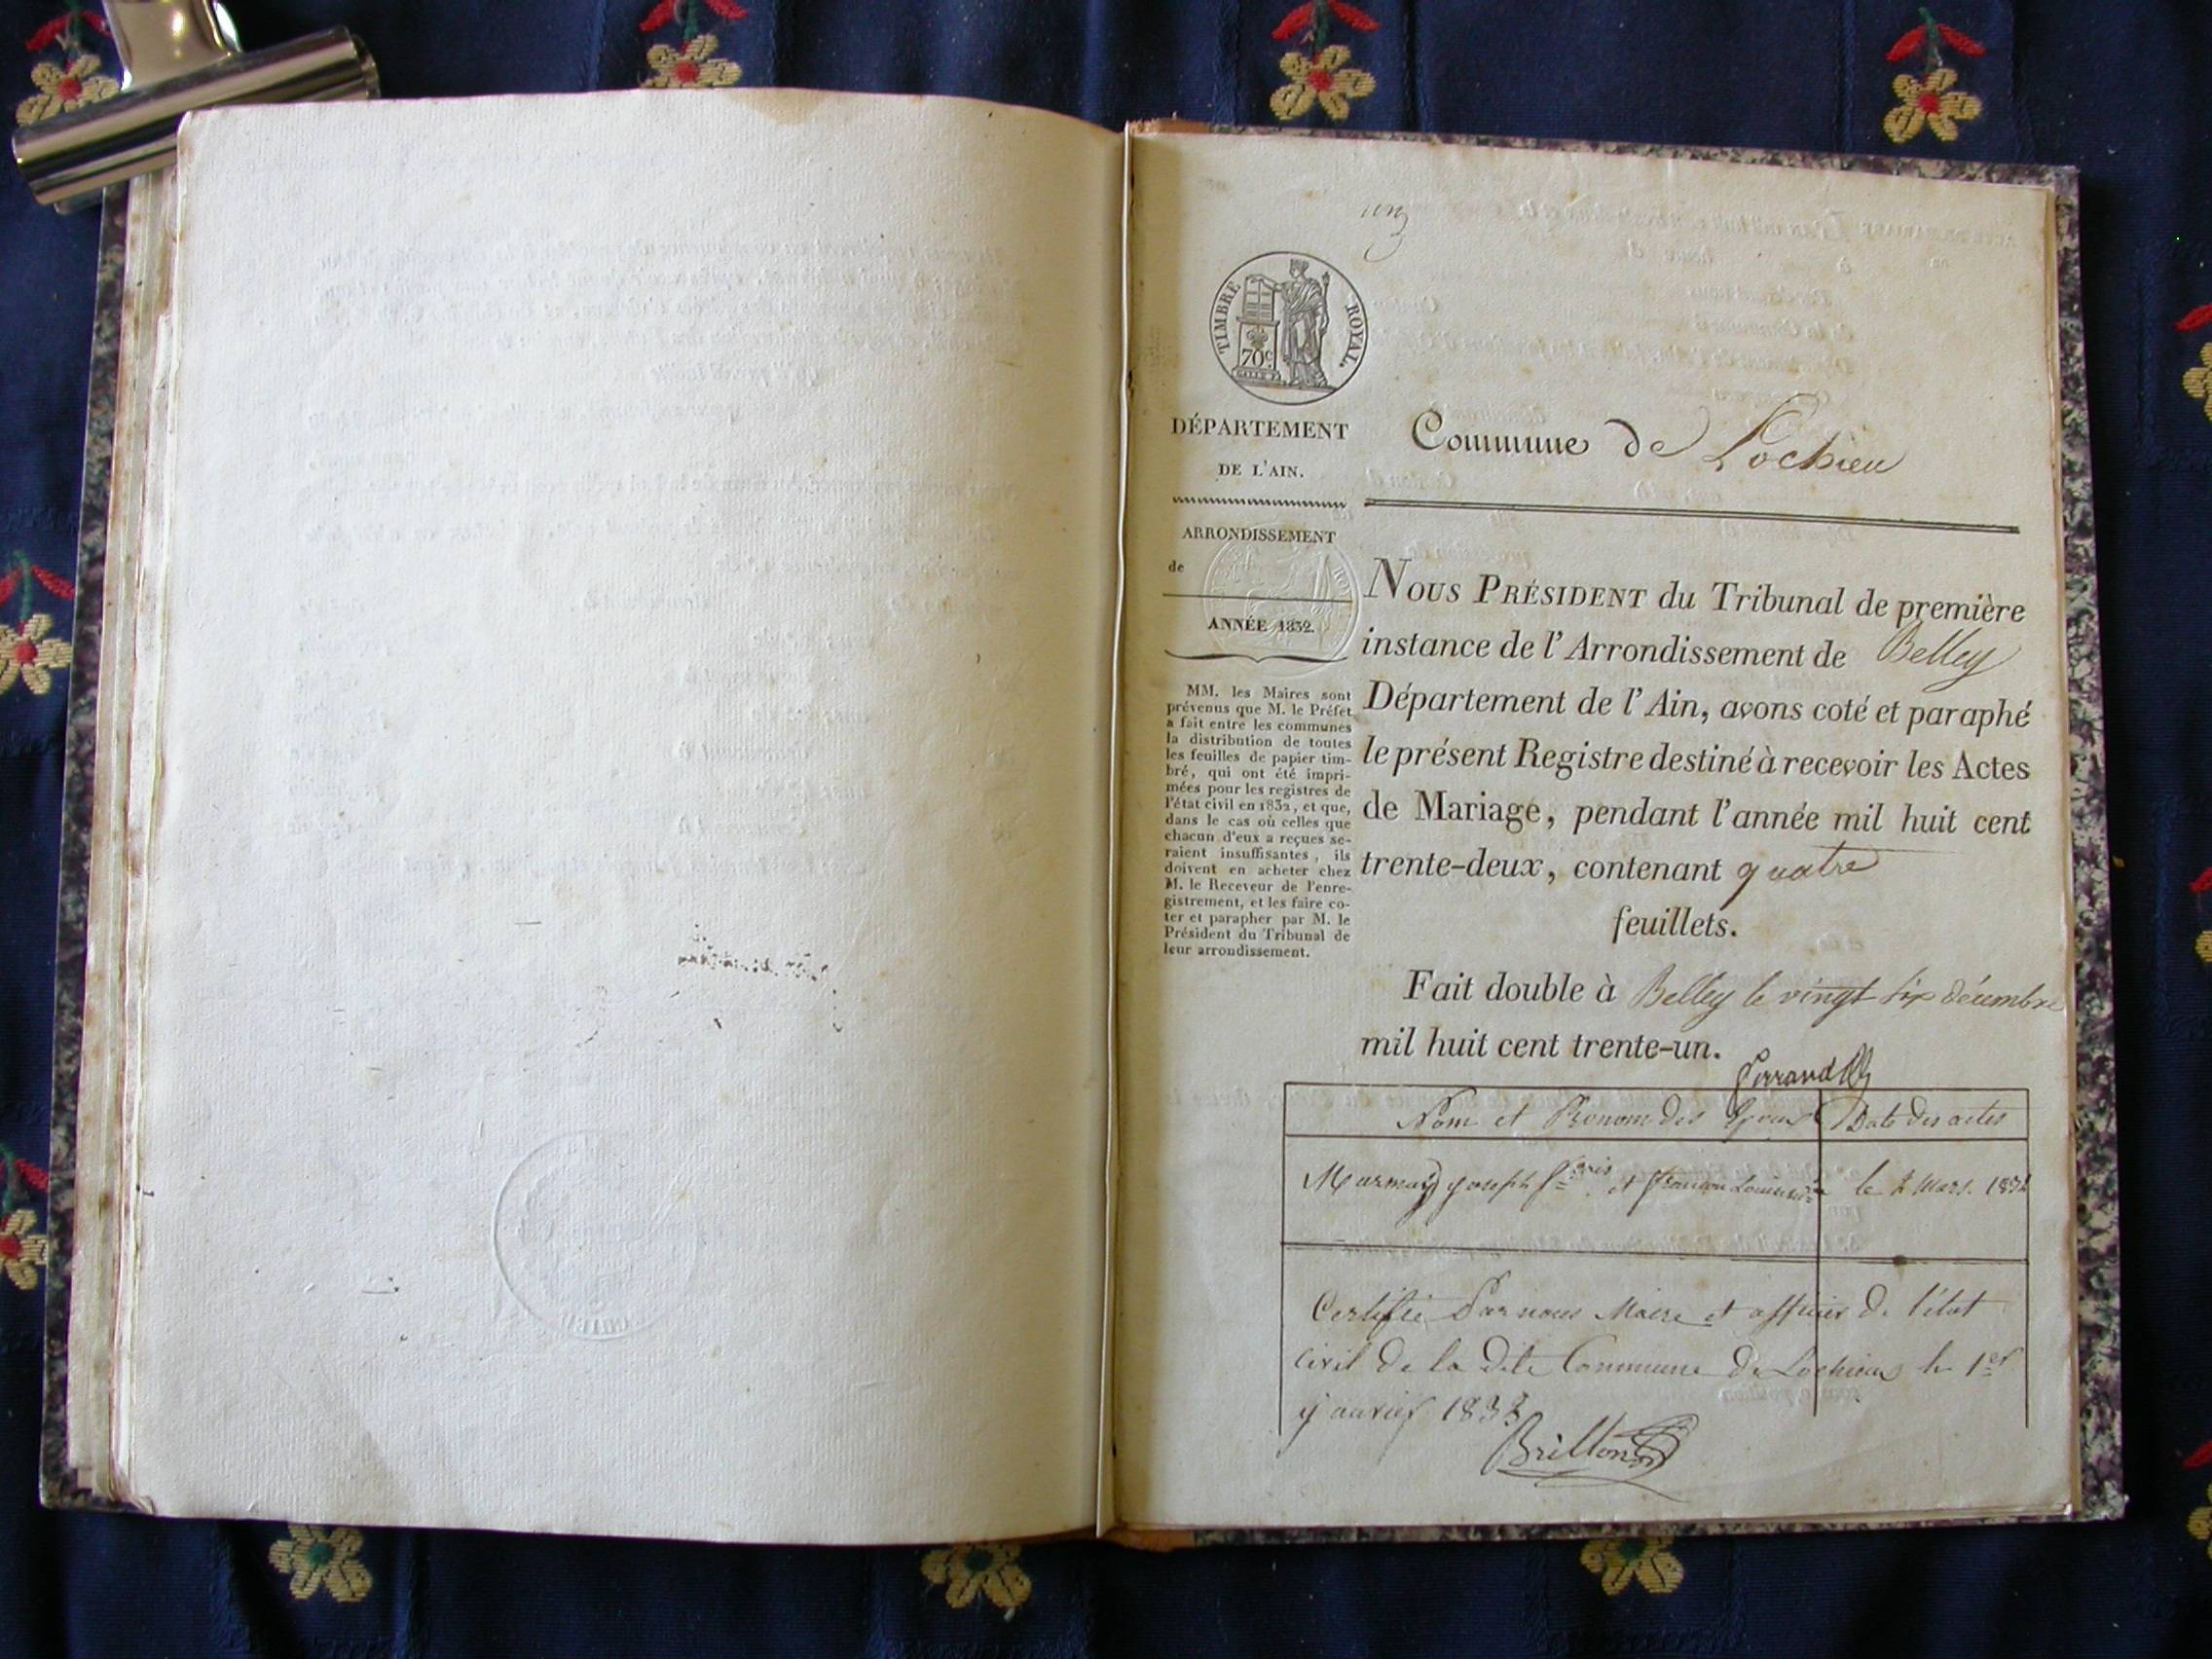 TIMBRE ROYAL.
70c
DÉPARTEMENT
DE L'AIN.
ARRONDISSEMENT
de
ANNÉE 1832.
MM. les Maires sont
prévenus que M. le Préfet
a fait entre les communes
la distribution de toutes
les feuilles de papier tim-
bré, qui ont été impri-
mées pour les registres de
l'état civil en 1832, et que,
dans le cas où celles que
chacun d'eux a reçues se-
raient insuffisantes, ils
doivent en acheter chez
M. le Receveur de l'enre-
gistrement, et les faire co-
ter et parapher par M. le
Président du Tribunal de
leur arrondissement.
Commune de Lochieu
NOUS PRÉSIDENT du Tribunal de première
instance de l'Arrondissement de Belley
Département de l'Ain, avons coté et paraphé
le présent Registre destiné à recevoir les Actes
de Mariage, pendant l'année mil huit cent
trente-deux, contenant quatre
feuillets.
Fait double à Belley le vingt six décembre
mil huit cent trente-un.
Nom et Prenom des Epoux Date des actes
joseph et le Mars
Certifié Par nous Maire et officier de l'état
civil de la dite Commune de Lochieu le 1er
janvier
Brillon